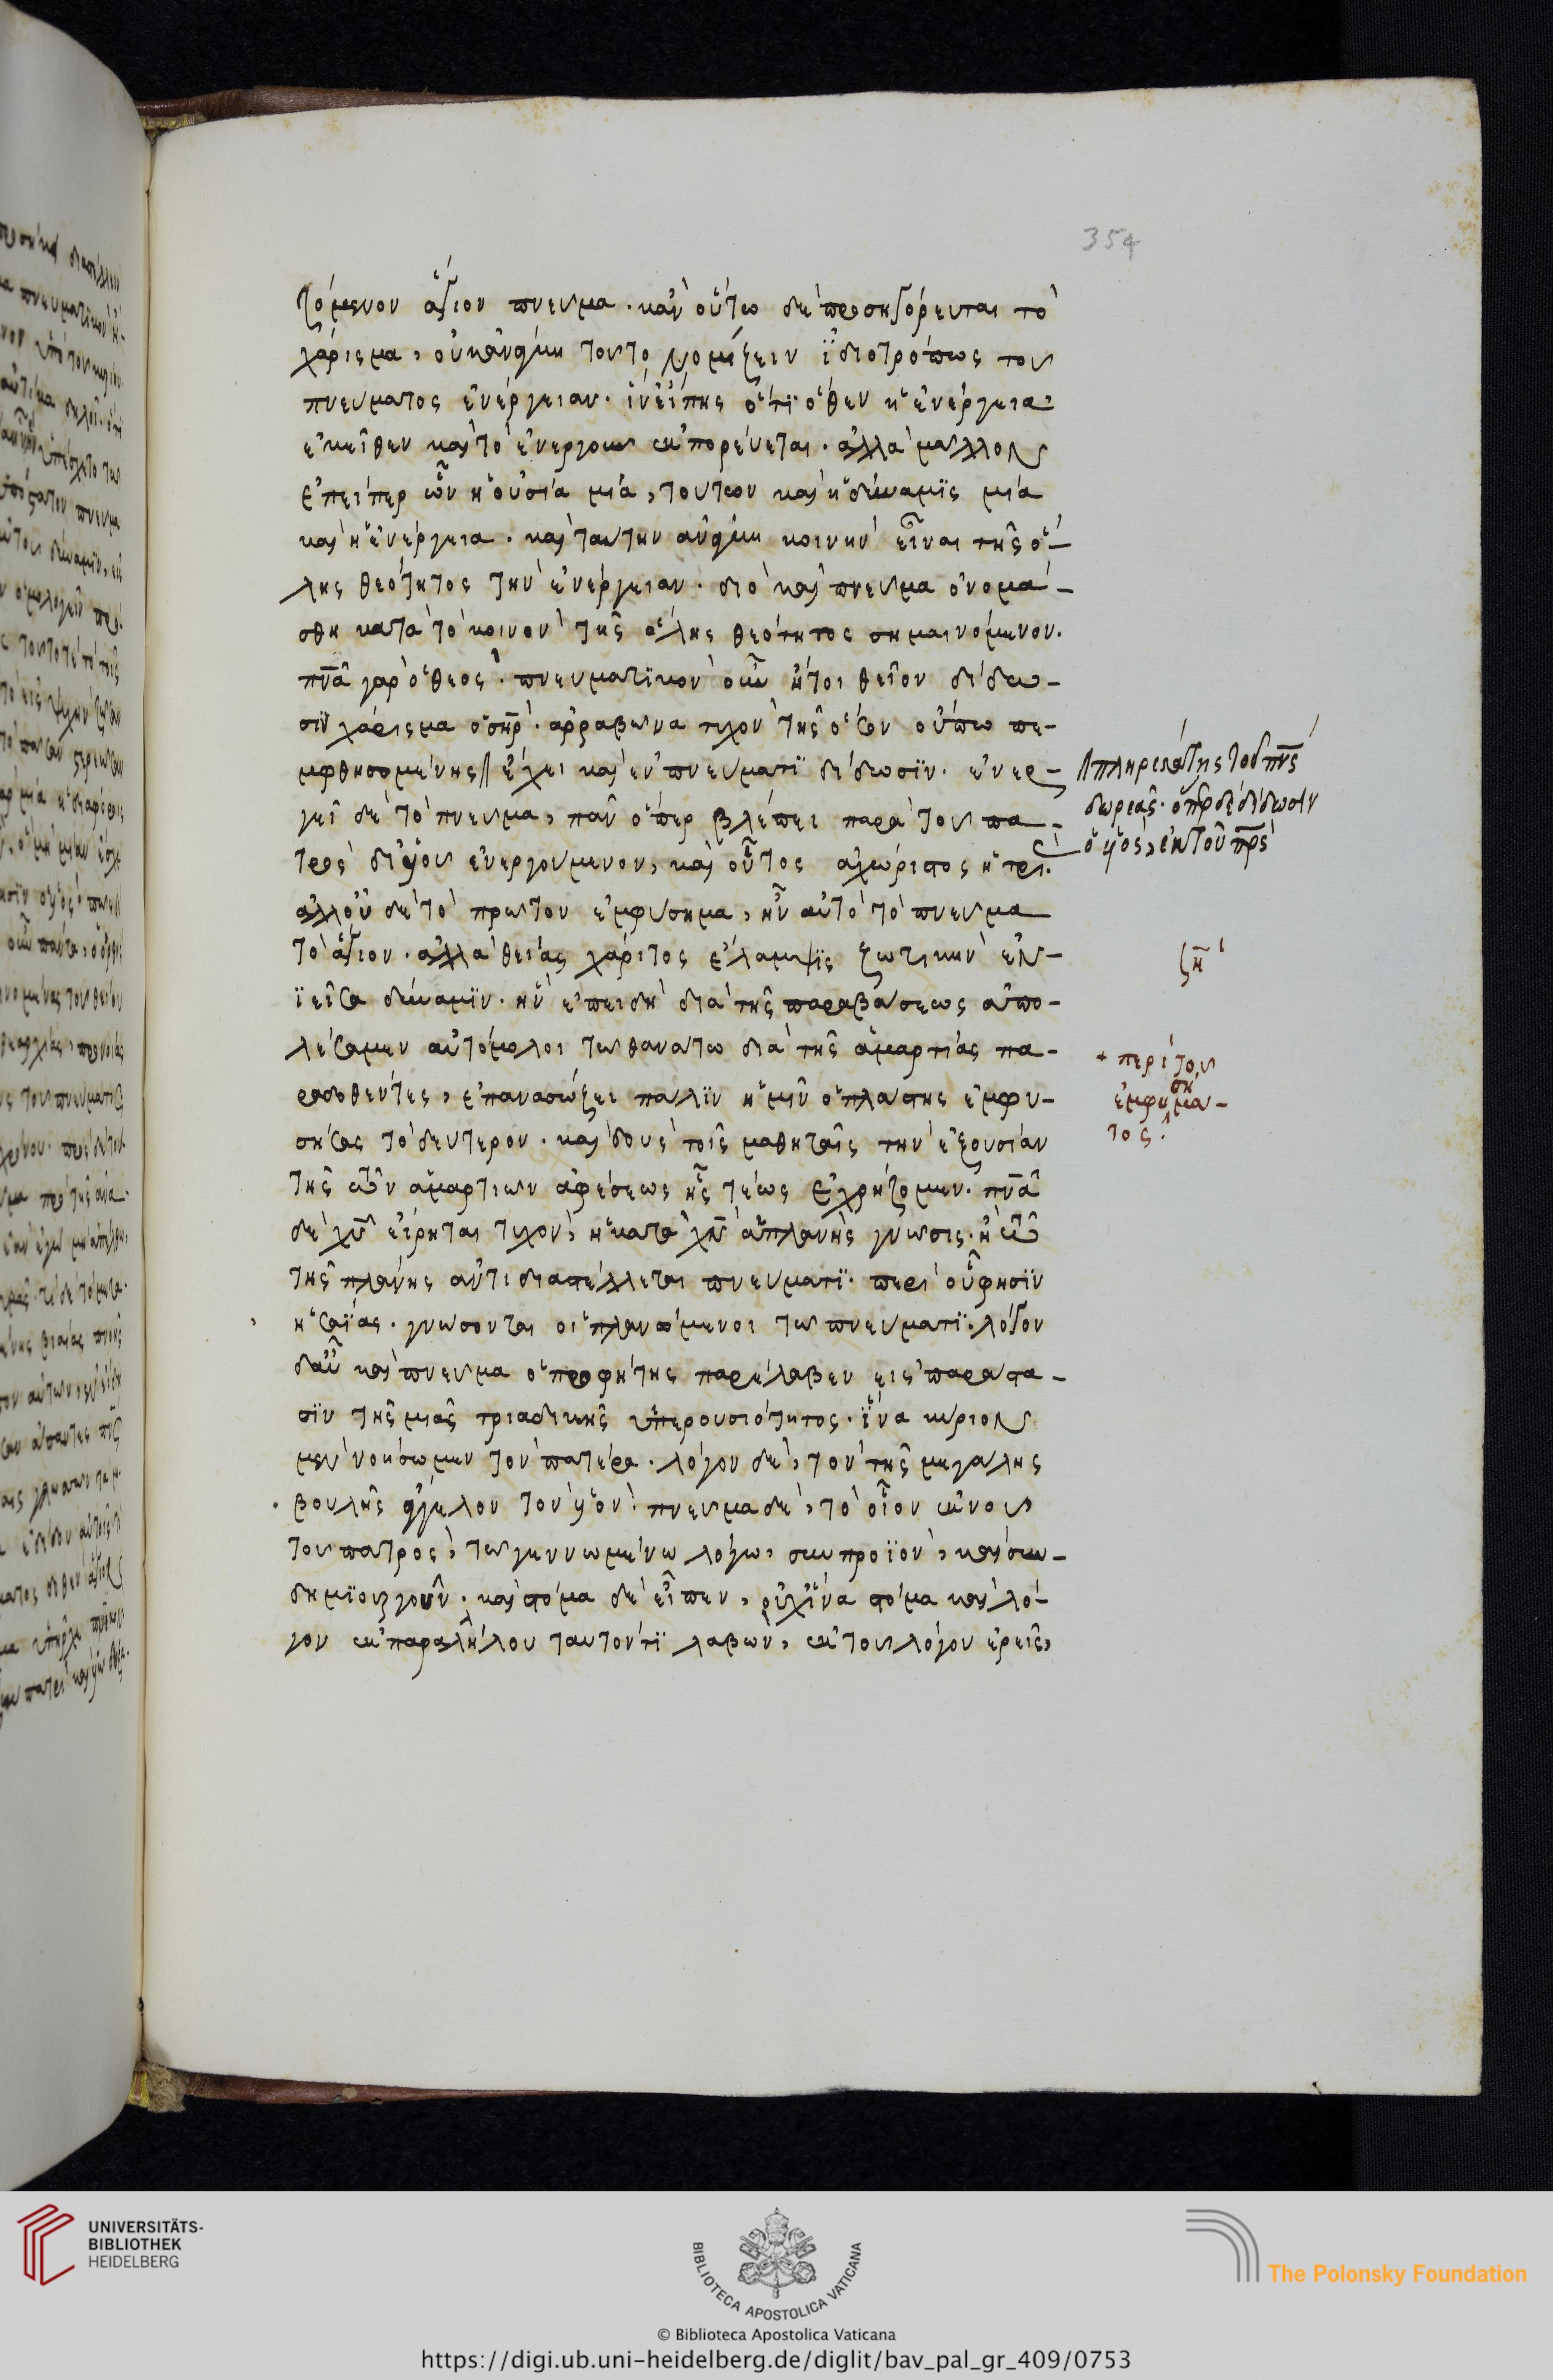 354
ζόμενον ἅγιον πνεῦμα. κἂν οὕτω δὲ προσηγόρευται τὸ
χάρισμα, οὐκ ἀνάγκη τοῦτο νομίζειν ἰδιοτρόπως τοῦ
πνεύματος ἐνέργειαν. ὅτι ὅθεν ἡ ἐνέργεια
ἐκεῖθεν καὶ τὸ ἐνεργοῦν ἐκπορεύεται. ἀλλὰ μᾶλλον
ἐπείπερ ὧν ἡ οὐσία μία, τούτων καὶ ἡ δύναμϊς μία
καὶ ἡ ἐνέργεια. καὶ ταύτην ἀνάγκη κοινὴν εἶναι τῆς ὅ-
λης θεότητος τὴν ἐνέργειαν. διὸ καὶ πνεῦμα ὀνομά-
σθη κατὰ τὸ κοινὸν τῆς ὅλης θεότητος σημαινόμενον.
πνᾶ γὰρ ὁ θεός. πνευματϊκὸν οὖν ἤτοι θεῖον δίδω-
σϊν χάρισμα ὁ σηρ. ἀρραβῶνα τυχὸν τῆς ὅσον οὔπω πε-
μφθησομένης // ἔχει καὶ ἐν πνεύματϊ δίδωσϊν. ἐνερ-
γεῖ δὲ τὸ πνεῦμα, πᾶν ὅπερ βλέπει παρὰ τοῦ πα-
τρὸς δι' υἱοῦ ἐνεργούμενον, καὶ οὗτος ἀχώριστος ἡ τρι.
ἀλλ' οὐδὲ τὸ πρῶτον ἐμφύσημα, ἦν αὐτὸ τὸ πνεῦμα
τὸ ἅγιον. ἀλλὰ θείας χάριτος ἔλαμψϊς ζωτικὴν ἐν-
ϊεῖσα δύναμϊν. ἣν ἐπειδὴ διὰ τῆς παραβάσεως ἀπο-
λέσαμεν αὐτόμολοι τῶ θανάτω διὰ τῆς ἁμαρτίας πα-
ραδοθέντες, ἐπανασώζει πάλϊν ἡμῖν ὁ πλάστης ἐμφυ-
σήσας τὸ δεύτερον. καὶ δοὺς τοῖς μαθηταῖς τὴν ἐξουσίαν
τῆς τῶν ἁμαρτιῶν ἀφέσεως ἧς τέως ἐχρήζομεν. πνᾶ
δὲ χυ εἴρηται τυχὸν, ἡ κατὰ χν ἀπλανὴς γνῶσις. ἡ τῶ
τῆς πλάνης ἀντιδιαστέλλεται πνεύματϊ. περὶ οὗ φησϊν
ἡσαΐας. γνώσονται οἱ πλανώμενοι τῶ πνεύματϊ. λόγον
δ' αὖ καὶ πνεῦμα ὁ προφήτης παρέλαβεν εἰς παράστα-
σϊν τῆς μιᾶς τριαδικῆς ὑπερουσιότητος. ἵνα κύριον
μὲν νοήσωμεν τὸν πατέρα. λόγον δὲ, τὸν τῆς μεγάλης
βουλῆς ἄγγελον τὸν υἱόν. πνεῦμα δὲ, τὸ οἷον ἐκ νοῦ
τοῦ πατρὸς, τῶ γεννωμένω λόγω, συμπροϊὸν, καὶ συν-
δημϊουργοῦν. καὶ στόμα δὲ εἶπεν, οὐχ ἵνα στόμα καὶ λό-
γον ἐκ παραλλήλου ταυτόν τϊ λαβὼν, ἐκ τοῦ λόγου ἐρεῖς,
πληρεστάτης τοῦ πνς
δωρεᾶς. ὅπερ δὲ δίδωσιν
ὁ υἱὸς, ἐκ τοῦ πρς
ζη
+ περὶ τοῦ
ἐμφυσήμα-
τος.
UNIVERSITÄTS-
BIBLIOTHEK
HEIDELBERG
BIBLIOTECA APOSTOLICA VATICANA
The Polonsky Foundation
© Biblioteca Apostolica Vaticana
https://digi.ub.uni-heidelberg.de/diglit/bav_pal_gr_409/0753